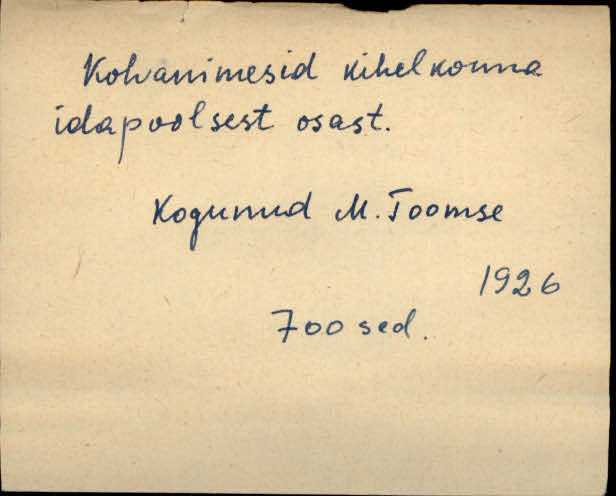 Kohanimesid kihelkonna
idapoolsest osast.
Kogunud M. Toomse
1926
700 sed.